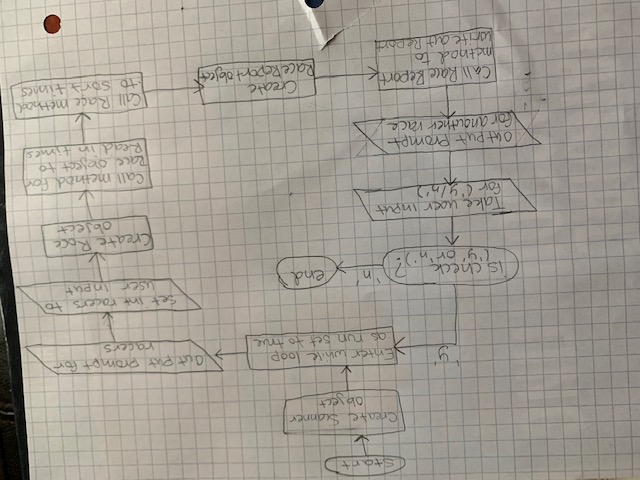 Start
Create Scanner
Object
Enter while loop
as run set to true
Output prompt for
racers
Set int racers to
user input
Create Race
Object
Call method for
Race object to
Read in times
Call Race method
to sort times
Create
RaceReport object
Call RaceReport
method to
write out Report
Output Prompt
for another race
Take user input
for ('y/n')
is check
('y' or 'n')?
'y'
'n'
end